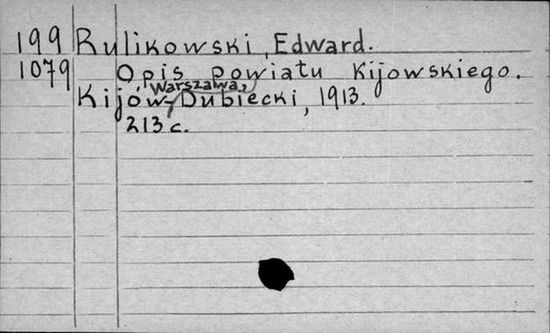 199 Rulikowski, Edward.
1079 Opis powiatu Kijowskiego.
Warszawa,
Kijów-Dubiecki, 1913.
213 c.